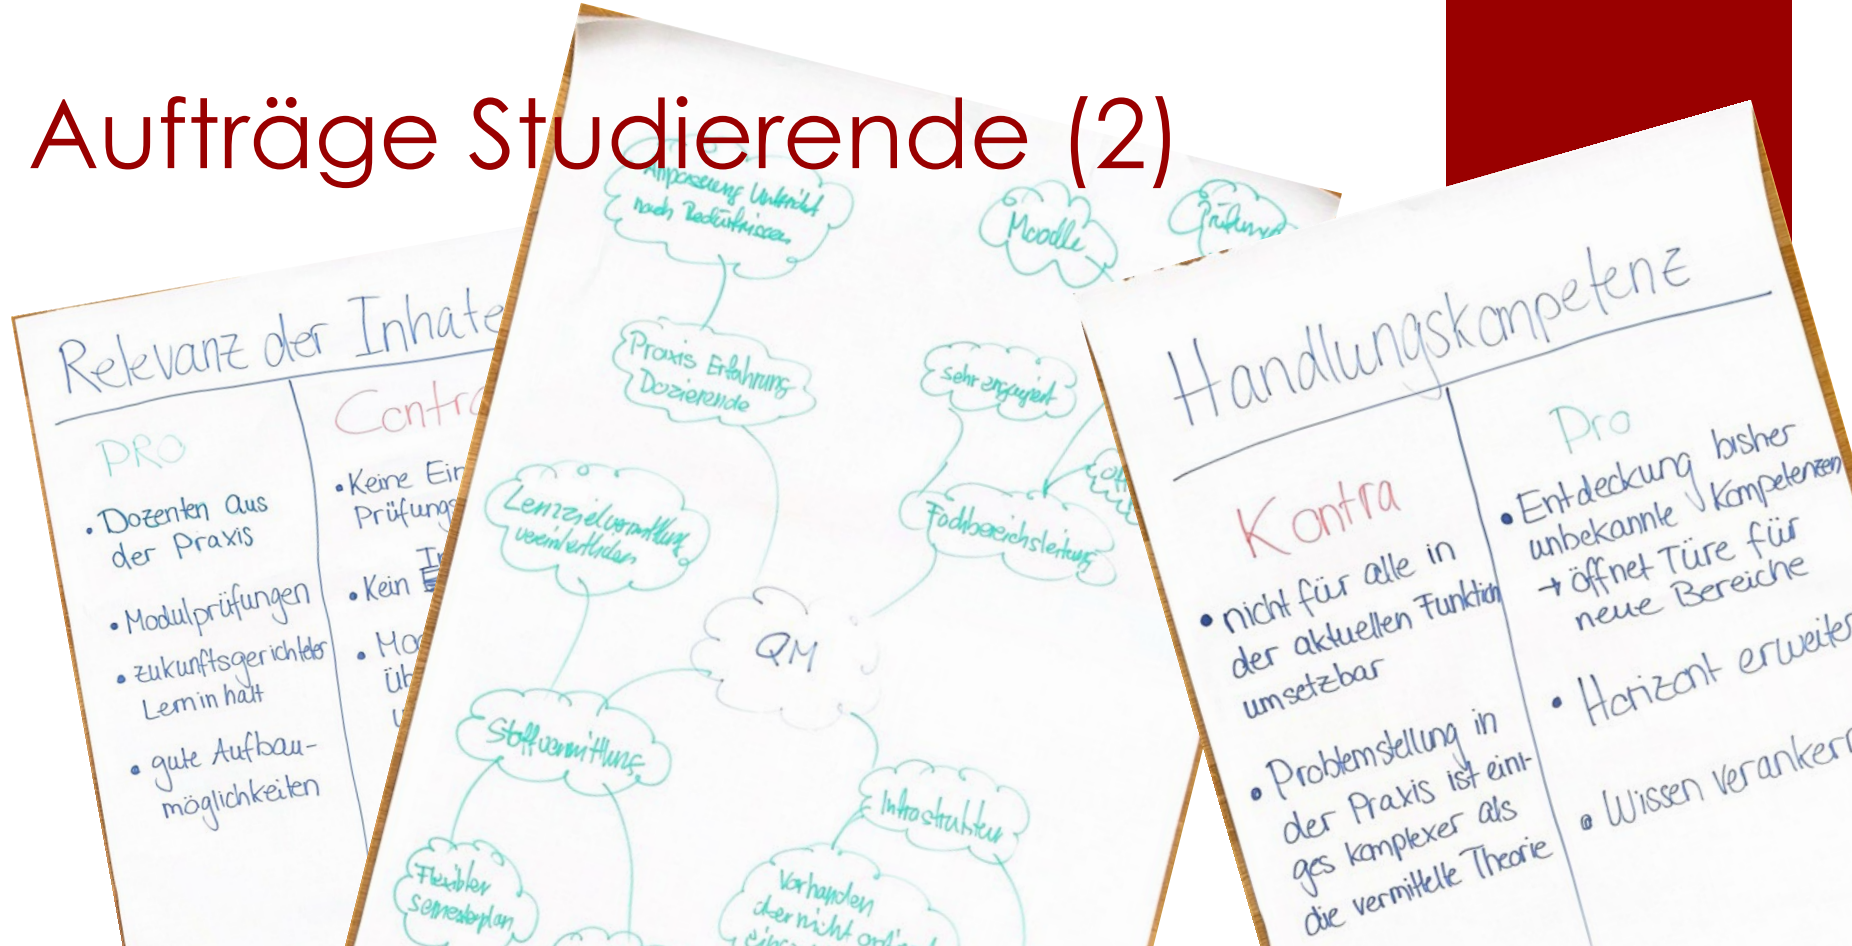 Aufträge Studierende (2)
Relevanz der Inhate
PRO
• Dozenten aus
der Praxis
• Modulprüfungen
• zukunftsgerichteter
Lerninhalt
• gute Aufbau-
möglichkeiten
Contra
• Keine Ein
Prüfungs
• Kein
Anpassung Unterricht
nach Bedürfnissen
Praxis Erfahrung
Dozierende
Lernzielvermittlung
Moodle
sehr engagiert
Fachbereichsleitung
QM
Stoffvermittlung
Infrastruktur
Flexibler
semesterplan
Vorhanden
aber nicht
Handlungskompetenz
Kontra
• nicht für alle in
der aktuellen Funktion
umsetzbar
• Problemstellung in
der Praxis ist eini-
ges komplexer als
die vermittelte Theorie
Pro
• Entdeckung bisher
unbekannte Kompetenzen
→ öffnet Türe für
neue Bereiche
• Horizont erweiter
• Wissen verankern